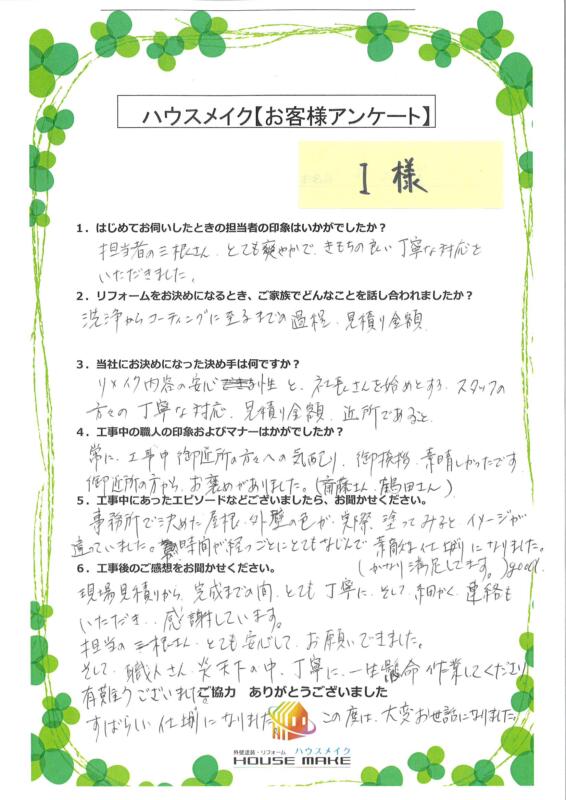 ハウスメイク【お客様アンケート】
I 様
1．はじめてお伺いしたときの担当者の印象はいかがでしたか？
担当者の三根さん、とても爽やかで、きもちの良い丁寧な対応を
いただきました。
2．リフォームをお決めになるとき、ご家族でどんなことを話し合われましたか？
洗浄からコーティングに至るまでの過程、見積り金額
3．当社にお決めになった決め手は何ですか？
リメイク内容の安心性と、社長さんを始めとする、スタッフの
方々の丁寧な対応、見積り金額、近所であること
4．工事中の職人の印象およびマナーはいかがでしたか？
常に、工事中御近所の方々への気配り、御挨拶、素晴しかったです
御近所の方から、お褒めがありました。（斎藤さん、鶴田さん）
5．工事中にあったエピソードなどございましたら、お聞かせください。
事務所で決めた屋根・外壁の色が、実際、塗ってみるとイメージが
違っていました。時間が経つごとにとてもなじんで素敵な仕上りになりました。
（かなり満足してます。）good
6．工事後のご感想をお聞かせください。
現場見積りから、完成までの間、とても丁寧に、そして細かく、連絡も
いただき、感謝しています。
担当の三根さん、とても安心して、お願いできました。
そして、職人さん、炎天下の中、丁寧に、一生懸命作業してくださり
有難うございました。
ご協力　ありがとうございました
すばらしい仕上りになりました。この度は、大変お世話になりました。
外壁塗装・リフォーム ハウスメイク
HOUSE MAKE